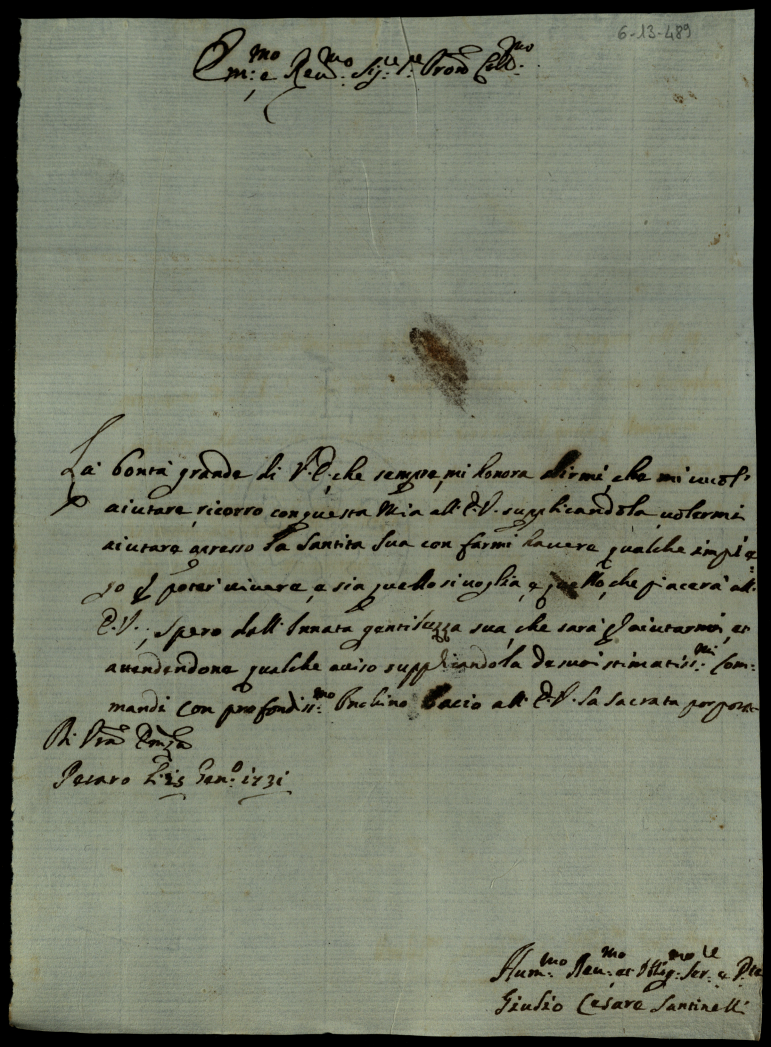 6-13-489
Em:mo e Reu:mo Sig:re Sre Prone Coll:mo
La bontà grande di V. E., che sempre mi honora dirmi, che mi vuol'
aiutare, ricorro con questa mia all'E.V. supplicandola uolermi
aiutare apresso la Santita Sua con farmi hauere qualche impie-
go p poter uiuere, e sia quello si uoglia, e quello, che piacerà all'
E.V., spero dall'innata gentilezza sua, che sarà p aiutarmi, et
attendendone qualche auiso supplicandola de suoi stimatiss:mi Com-
mandi con profondiss:mo Inchino bacio all'E.V. la sacrata porpora
Di Vra Emza
Pesaro Li 25 Gen:o 1731
Hum:mo Deu:mo et Obbg:mo Ser:le e
Giulio Cesare Santinelli